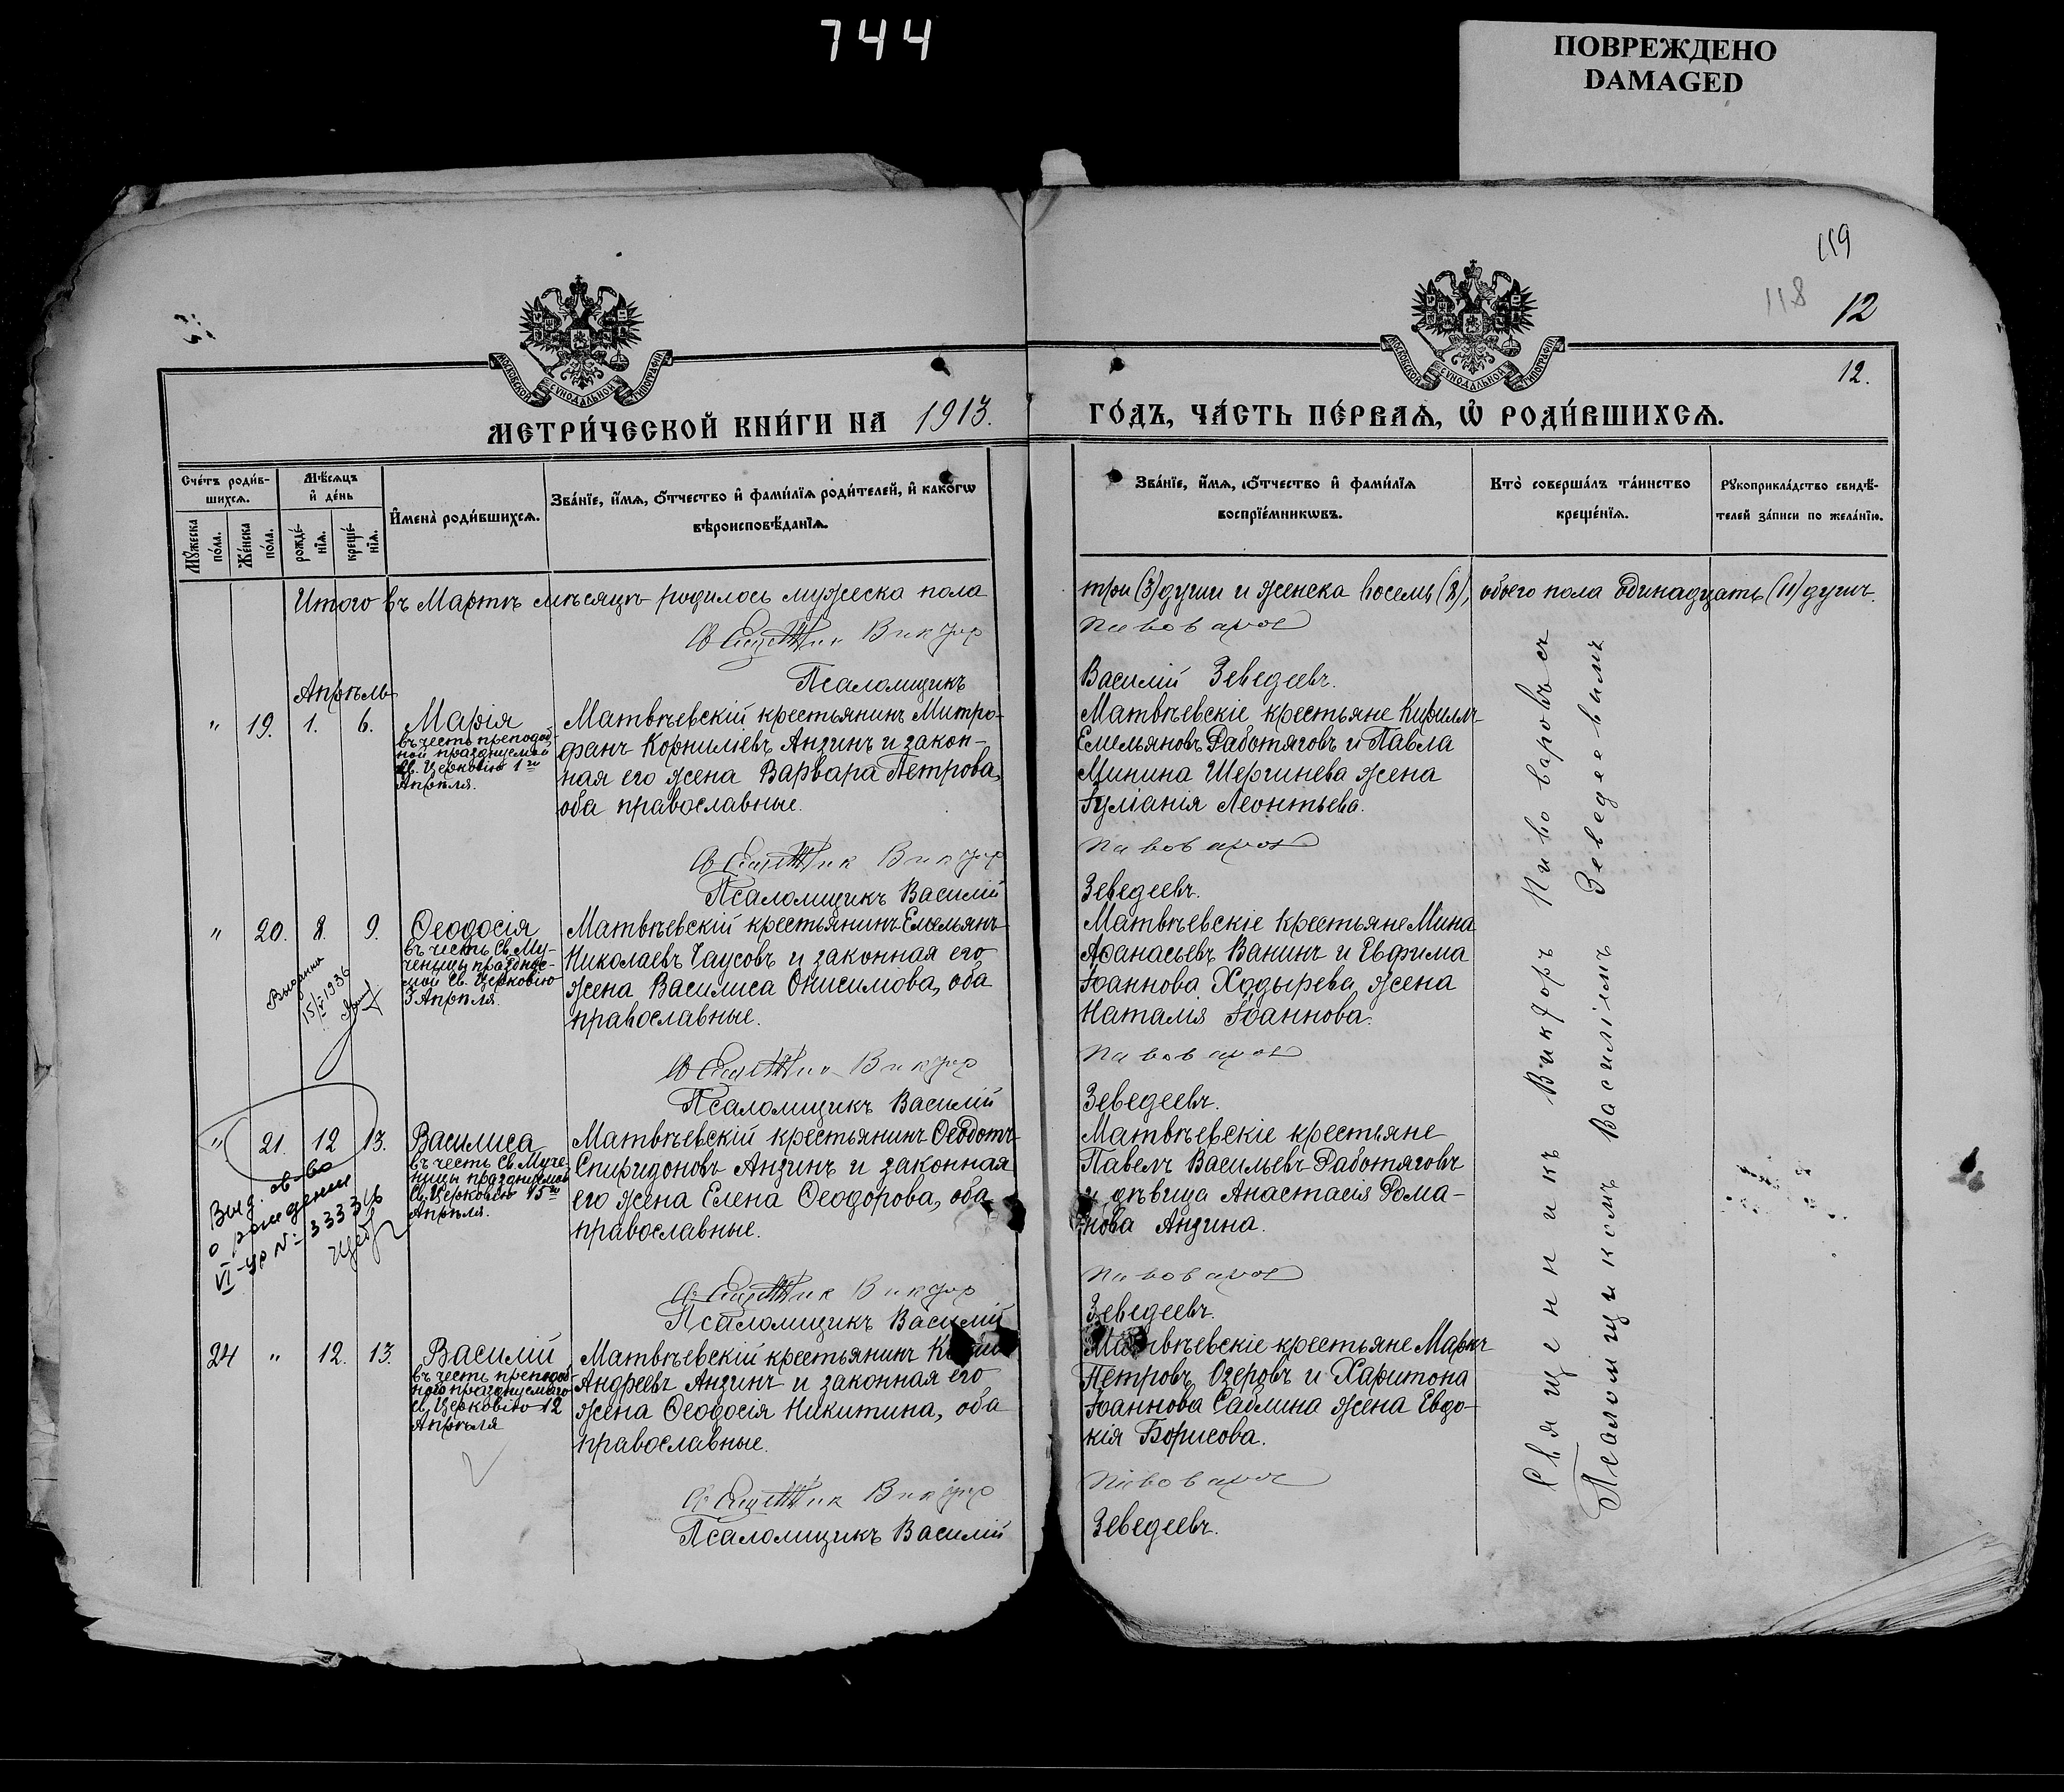 744
ПОВРЕЖДЕНО
DAMAGED
119
118
12
12.
МОСКОВСКОЙ СѴНОДАЛЬНОЙ ТИПОГРАФІИ
МОСКОВСКОЙ СѴНОДАЛЬНОЙ ТИПОГРАФІИ
МЕТРИ́ЧЕСКОЙ КНИ́ГИ НА 1913.
ГО́ДЪ, ЧА́СТЬ ПЕ́РВАѦ, Ѡ҆ РОДИ́ВШИХСѦ.
Сче́тъ роди́в-
шихсѧ.
Мꙋ́жеска
по́ла.
Же́нска
по́ла.
Мѣ́сѧцъ
и҆ де́нь
рожде́-
нїѧ.
креще́-
нїѧ.
И҆мена̀ роди́вшихсѧ.
Зва́нїе, и҆́мѧ, ѻ҆́тчество и҆ фами́лїѧ роди́телей, и҆ како́гѡ
вѣроисповѣ́данїѧ.
Зва́нїе, и҆́мѧ, ѻ҆́тчество и҆ фами́лїѧ
воспрїе́мникѡвъ.
Кто̀ соверша́лъ та́инство
креще́нїѧ.
Рꙋкоприкла́дство свидѣ́-
телей за́писи по жела́нїю.
Итого въ Мартѣ мѣсяцѣ родилось мужеска пола
три (3) души и женска восемь (8), обоего пола одинадцать (11) душъ.
Священник Виктор
Пивоваров
Псаломщикъ
Василій Зеведеевъ.
Апрѣль
" 19. 1. 6.
Марія
въ честь преподоб-
ной празднуемой
Св. Церковію 1го
Апрѣля.
Матвѣевскій крестьянинъ Митро-
фанъ Корниліевъ Анзинъ и закон-
ная его жена Варвара Петрова,
оба православные.
Матвѣевскіе крестьяне Кириллъ
Емельяновъ Работяговъ и Павла
Минина Шергинева жена
Іуліанія Леонтьева.
Священник Виктор
Пивоваров
Псаломщикъ Василій
Зеведеевъ.
" 20. 8. 9.
Ѳеодосія
въ честь Св. Му-
ченицы праздную-
мой Св. Церковію
3 Апрѣля.
Выданна
15/V 1936
Матвѣевскій крестьянинъ Емельянъ
Николаевъ Чаусовъ и законная его
жена Василиса Онисимова, оба
православные.
Матвѣевскіе крестьяне Мина
Аѳанасьевъ Ванинъ и Евфима
Іоаннова Ходырева жена
Наталія Іоаннова.
Священник Виктор
Пивоваров
Псаломщикъ Василій
Зеведеевъ.
" 21. 12 13.
Василиса
въ честь Св. Муче-
ницы празднуемой
Св. Церковію 15го
Апрѣля.
Выд. св-во
о рождении
Матвѣевскій крестьянинъ Ѳеодотъ
Спиридоновъ Анзинъ и законная
его жена Елена Ѳеодорова, оба
православные.
Матвѣевскіе крестьяне
Павелъ Васильевъ Работяговъ
и дѣвица Анастасія Рома-
нова Анзина.
Священник Виктор
Пивоваров
Псаломщикъ Василій
Зеведеевъ.
24 " 12. 13.
Василій
въ честь преподоб-
наго празднуемаго
Св. Церковію 12
Апрѣля
Матвѣевскій крестьянинъ
Андреевъ Анзинъ и законная его
жена Ѳеодосія Никитина, оба
православные.
Матвѣевскіе крестьяне Маркъ
Петровъ Озеровъ и Харитона
Іоаннова Саблина жена Евдо-
кія Борисова.
Священник Виктор
Пивоваров
Псаломщикъ Василій
Зеведеевъ.
Священникъ Викторъ Пивоваровъ съ
Псаломщикомъ Василіемъ Зеведеевымъ